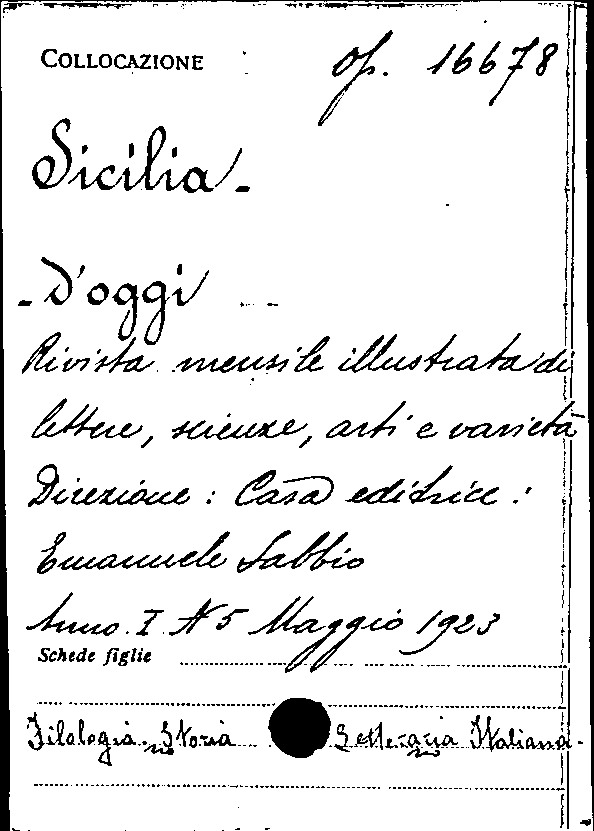 COLLOCAZIONE op. 16678
Sicilia -
- d'oggi
Rivista mensile illustrata di
lettere, scienze, arti e varietà
Direzione: Casa editrice:
Emanuele Sabbio
Anno I N 5 Maggio 1923
Schede figlie
Filologia - Storia Letteraria Italiana -